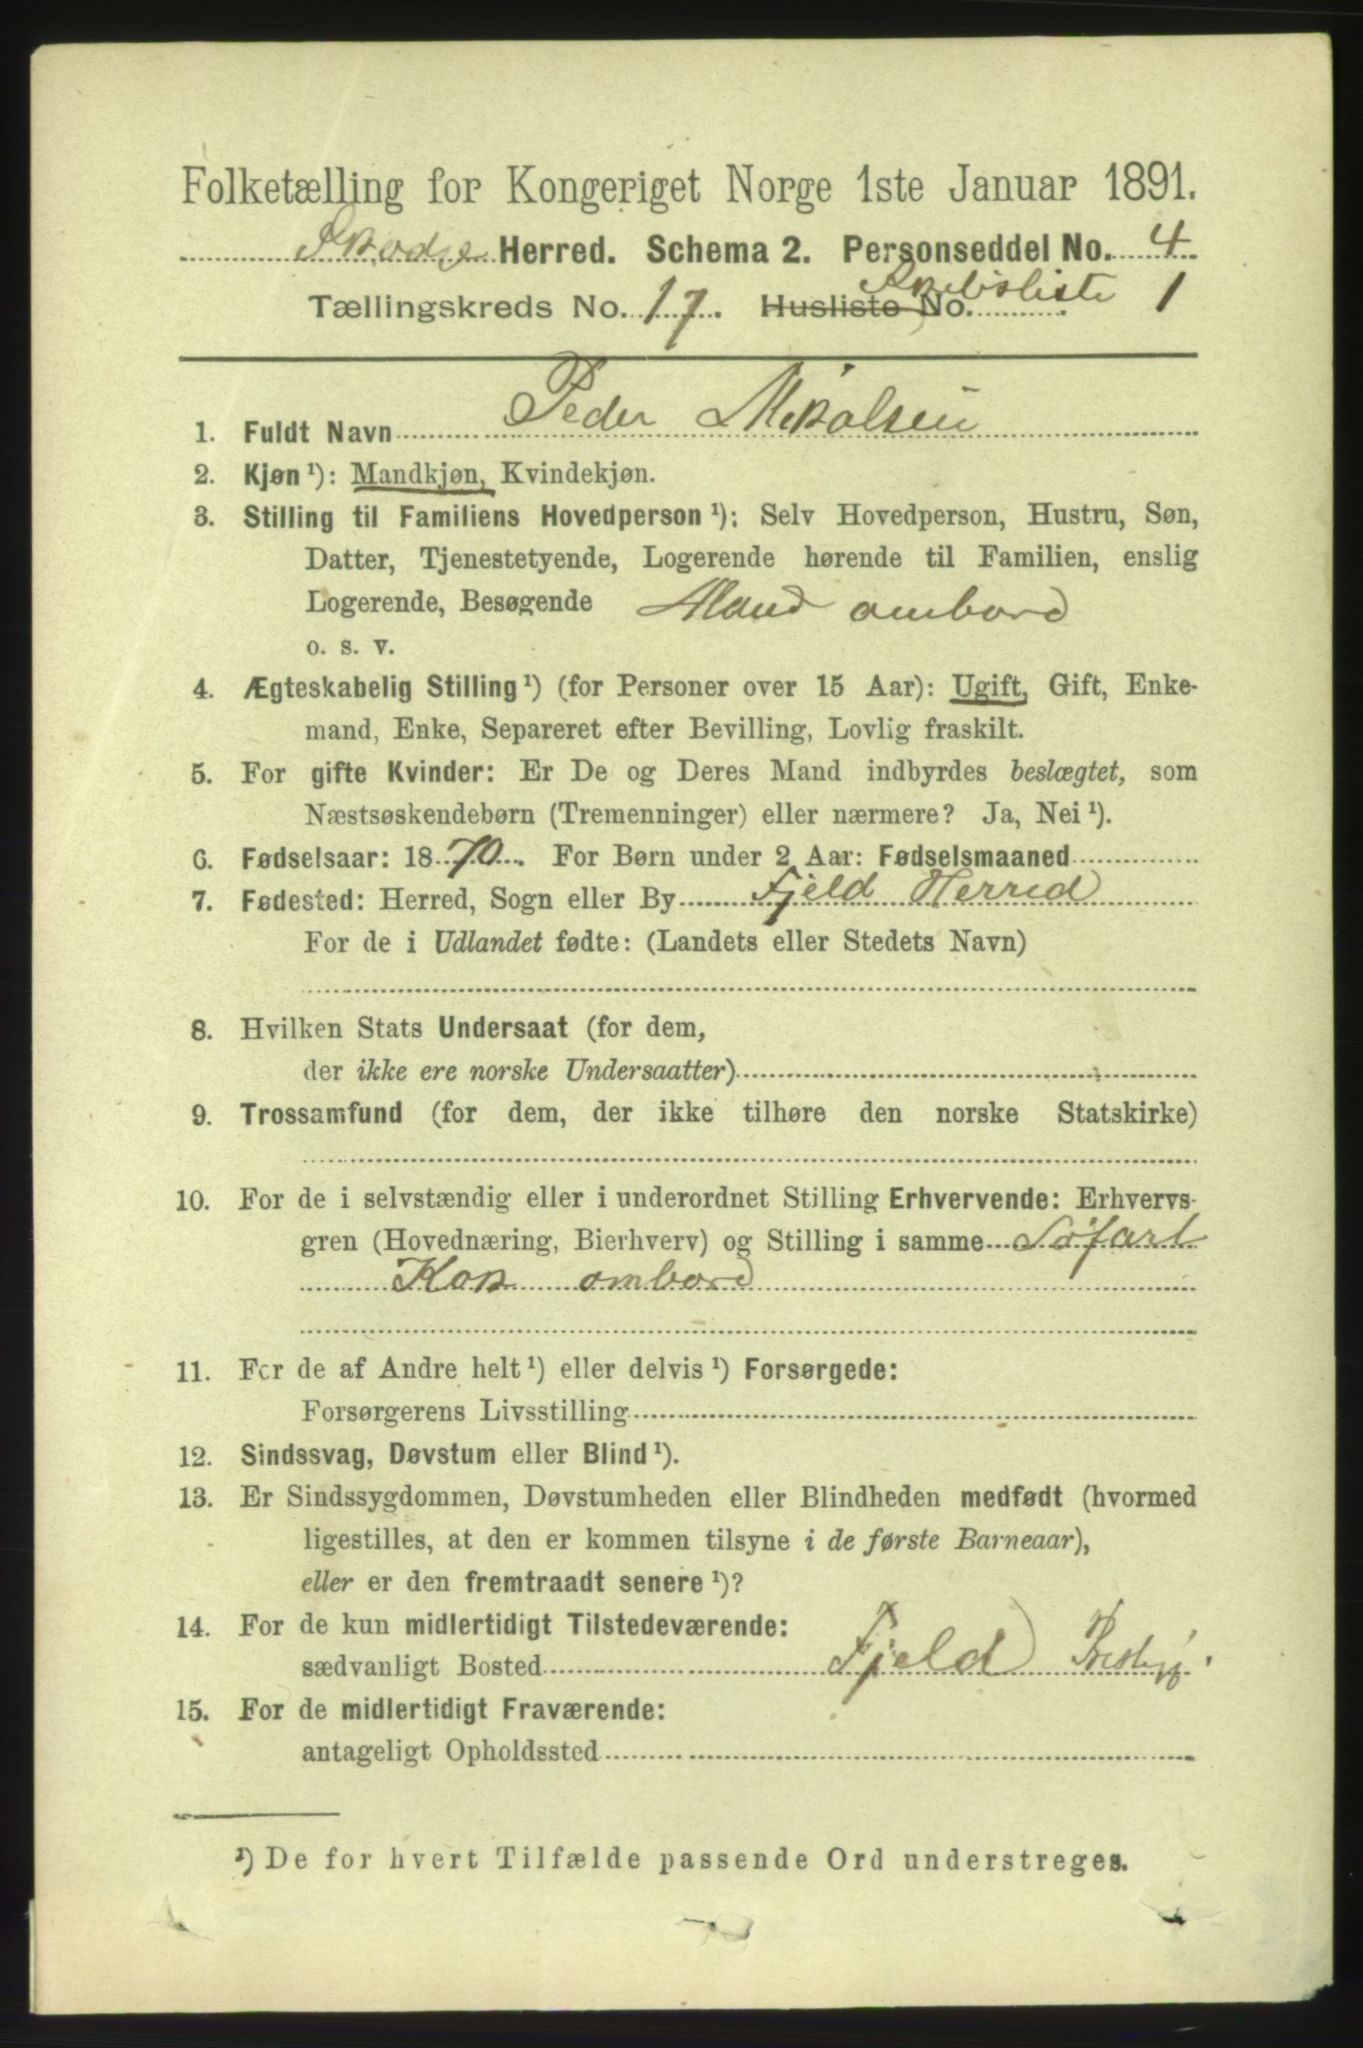 Folketælling for Kongeriget Norge 1ste Januar 1891.
Skodje Herred. Schema 2. Personseddel No. 4
Tællingskreds No. 17. Husliste No. Skibsliste 1
1. Fuldt Navn Peder Mikalsen
2. Kjøn ¹): Mandkjøn, Kvindekjøn.
3. Stilling til Familiens Hovedperson ¹): Selv Hovedperson, Hustru, Søn,
Datter, Tjenestetyende, Logerende hørende til Familien, enslig
Logerende, Besøgende Mand ombord
o. s. v.
4. Ægteskabelig Stilling ¹) (for Personer over 15 Aar): Ugift, Gift, Enke-
mand, Enke, Separeret efter Bevilling, Lovlig fraskilt.
5. For gifte Kvinder: Er De og Deres Mand indbyrdes beslægtet, som
Næstsøskendebørn (Tremenninger) eller nærmere? Ja, Nei ¹).
6. Fødselsaar: 1870. For Børn under 2 Aar: Fødselsmaaned
7. Fødested: Herred, Sogn eller By Fjeld Herred
For de i Udlandet fødte: (Landets eller Stedets Navn)
8. Hvilken Stats Undersaat (for dem,
der ikke ere norske Undersaatter)
9. Trossamfund (for dem, der ikke tilhøre den norske Statskirke)
10. For de i selvstændig eller i underordnet Stilling Erhvervende: Erhvervs-
gren (Hovednæring, Bierhverv) og Stilling i samme Søfart
Kok ombord
11. For de af Andre helt ¹) eller delvis ¹) Forsørgede:
Forsørgerens Livsstilling
12. Sindssvag, Døvstum eller Blind ¹).
13. Er Sindssygdommen, Døvstumheden eller Blindheden medfødt (hvormed
ligestilles, at den er kommen tilsyne i de første Barneaar),
eller er den fremtraadt senere ¹)?
14. For de kun midlertidigt Tilstedeværende:
sædvanligt Bosted Fjeld
15. For de midlertidigt Fraværende:
antageligt Opholdssted
¹) De for hvert Tilfælde passende Ord understreges.